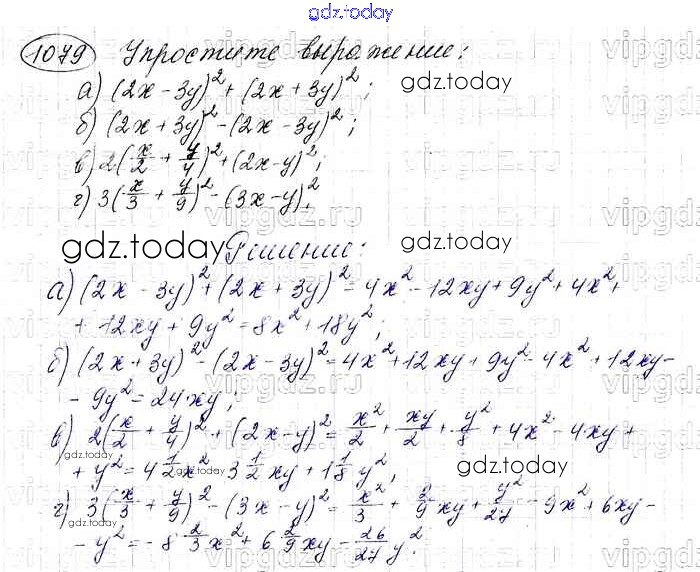 gdz.today
1079 Упростите выражение:
а) (2x - 3y)² + (2x + 3y)²; gdz.today
б) (2x + 3y)² - (2x - 3y)²;
в) 2(x/2 + y/4)² + (2x - y)²;
г) 3(x/3 + y/9)² - (3x - y)².
gdz.today Решение: gdz.today
а) (2x - 3y)² + (2x + 3y)² = 4x² - 12xy + 9y² + 4x² +
+ 12xy + 9y² = 8x² + 18y²;
б) (2x + 3y)² - (2x - 3y)² = 4x² + 12xy + 9y² - 4x² + 12xy -
- 9y² = 24xy;
в) 2(x/2 + y/4)² + (2x - y)² = x²/2 + xy/2 + y²/8 + 4x² - 4xy +
+ y² = 4 1/2 x² - 3 1/2 xy + 1 1/8 y²; gdz.today
г) 3(x/3 + y/9)² - (3x - y)² = x²/3 + 2/9 xy + y²/27 - 9x² + 6xy -
- y² = -8 2/3 x² + 6 2/9 xy - 26/27 y².
vipgdz.ru